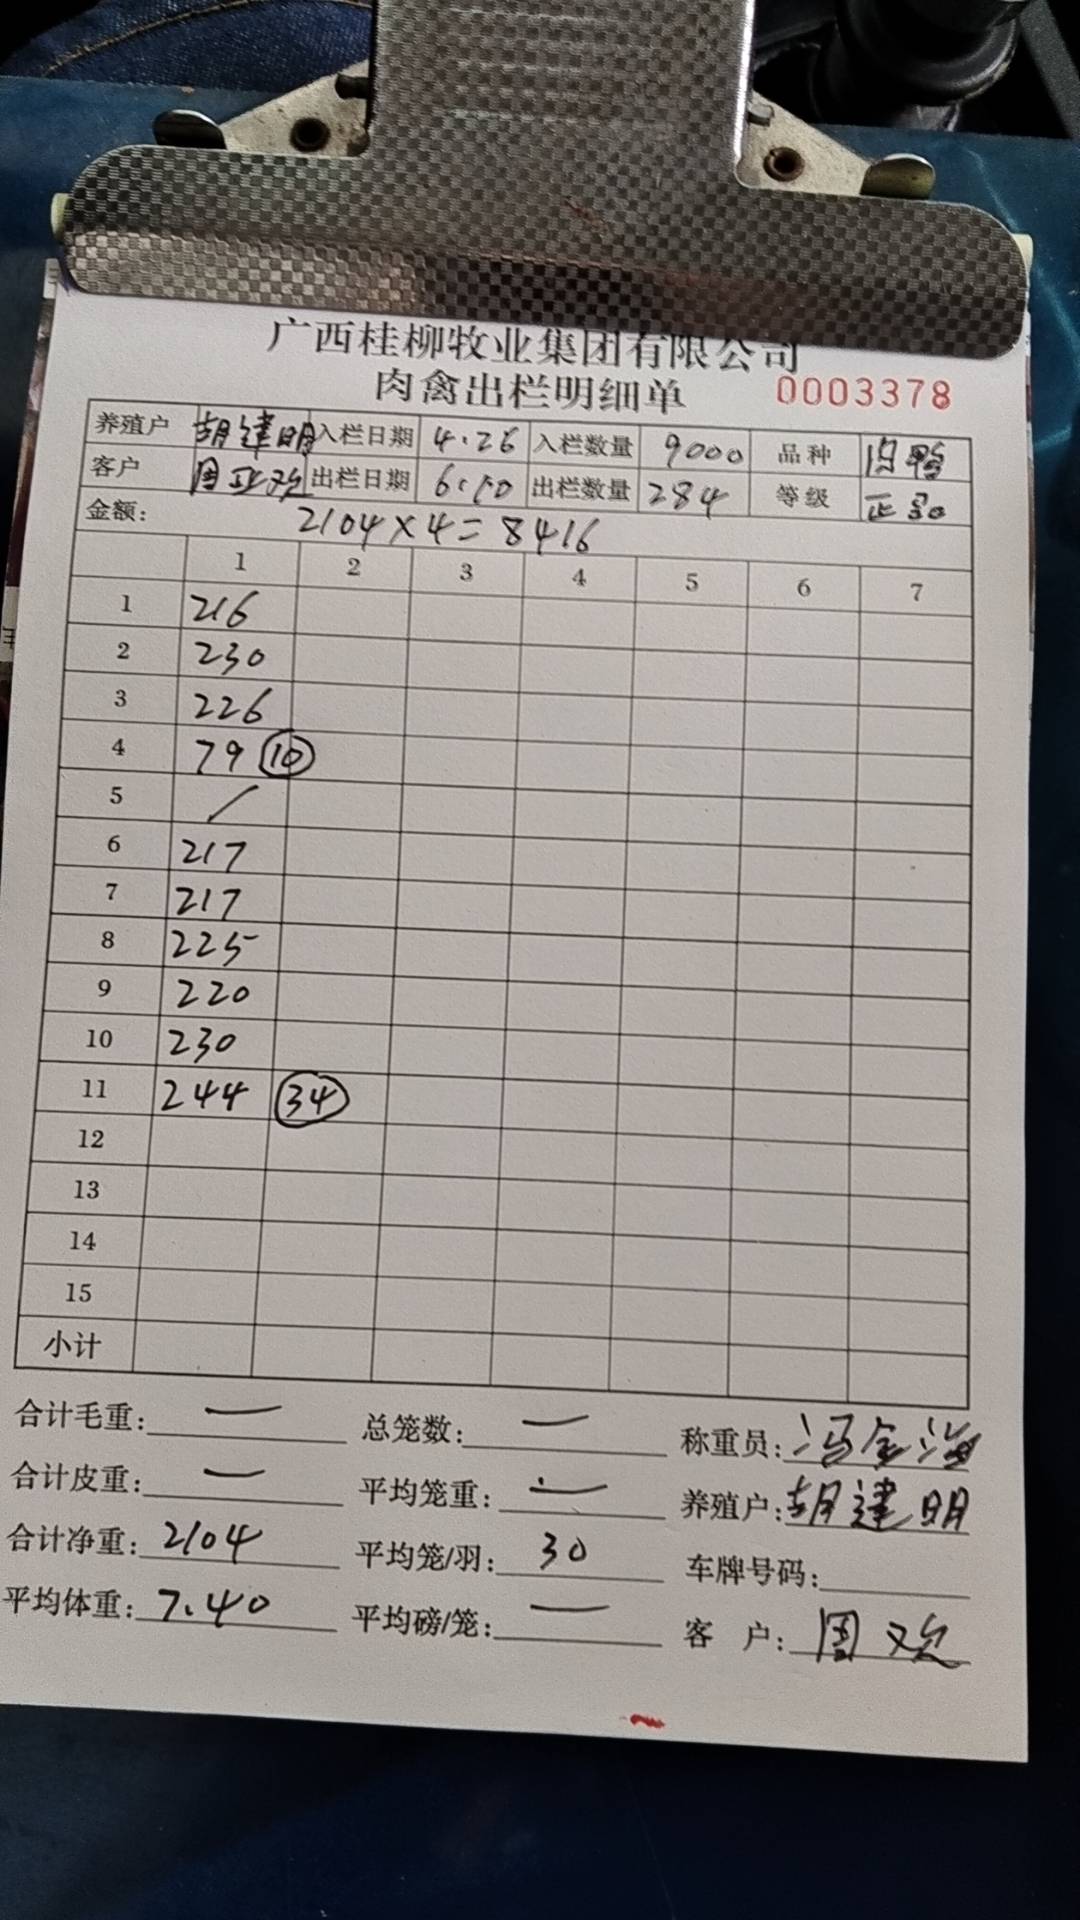 广西桂柳牧业集团有限公司
肉禽出栏明细单 0003378
养殖户 胡建明 入栏日期 4.26 入栏数量 9000 品种 鸭
客户 周亚欢 出栏日期 6.10 出栏数量 284 等级 正品
金额: 2104×4=8416
1 2 3 4 5 6 7
1 216
2 230
3 226
4 79 10
5 /
6 217
7 217
8 225
9 220
10 230
11 244 34
12
13
14
15
小计
合计毛重: — 总笼数: — 称重员: 冯金海
合计皮重: — 平均笼重: — 养殖户: 胡建明
合计净重: 2104 平均笼/羽: 30 车牌号码:
平均体重: 7.40 平均磅/笼: — 客 户: 周欢